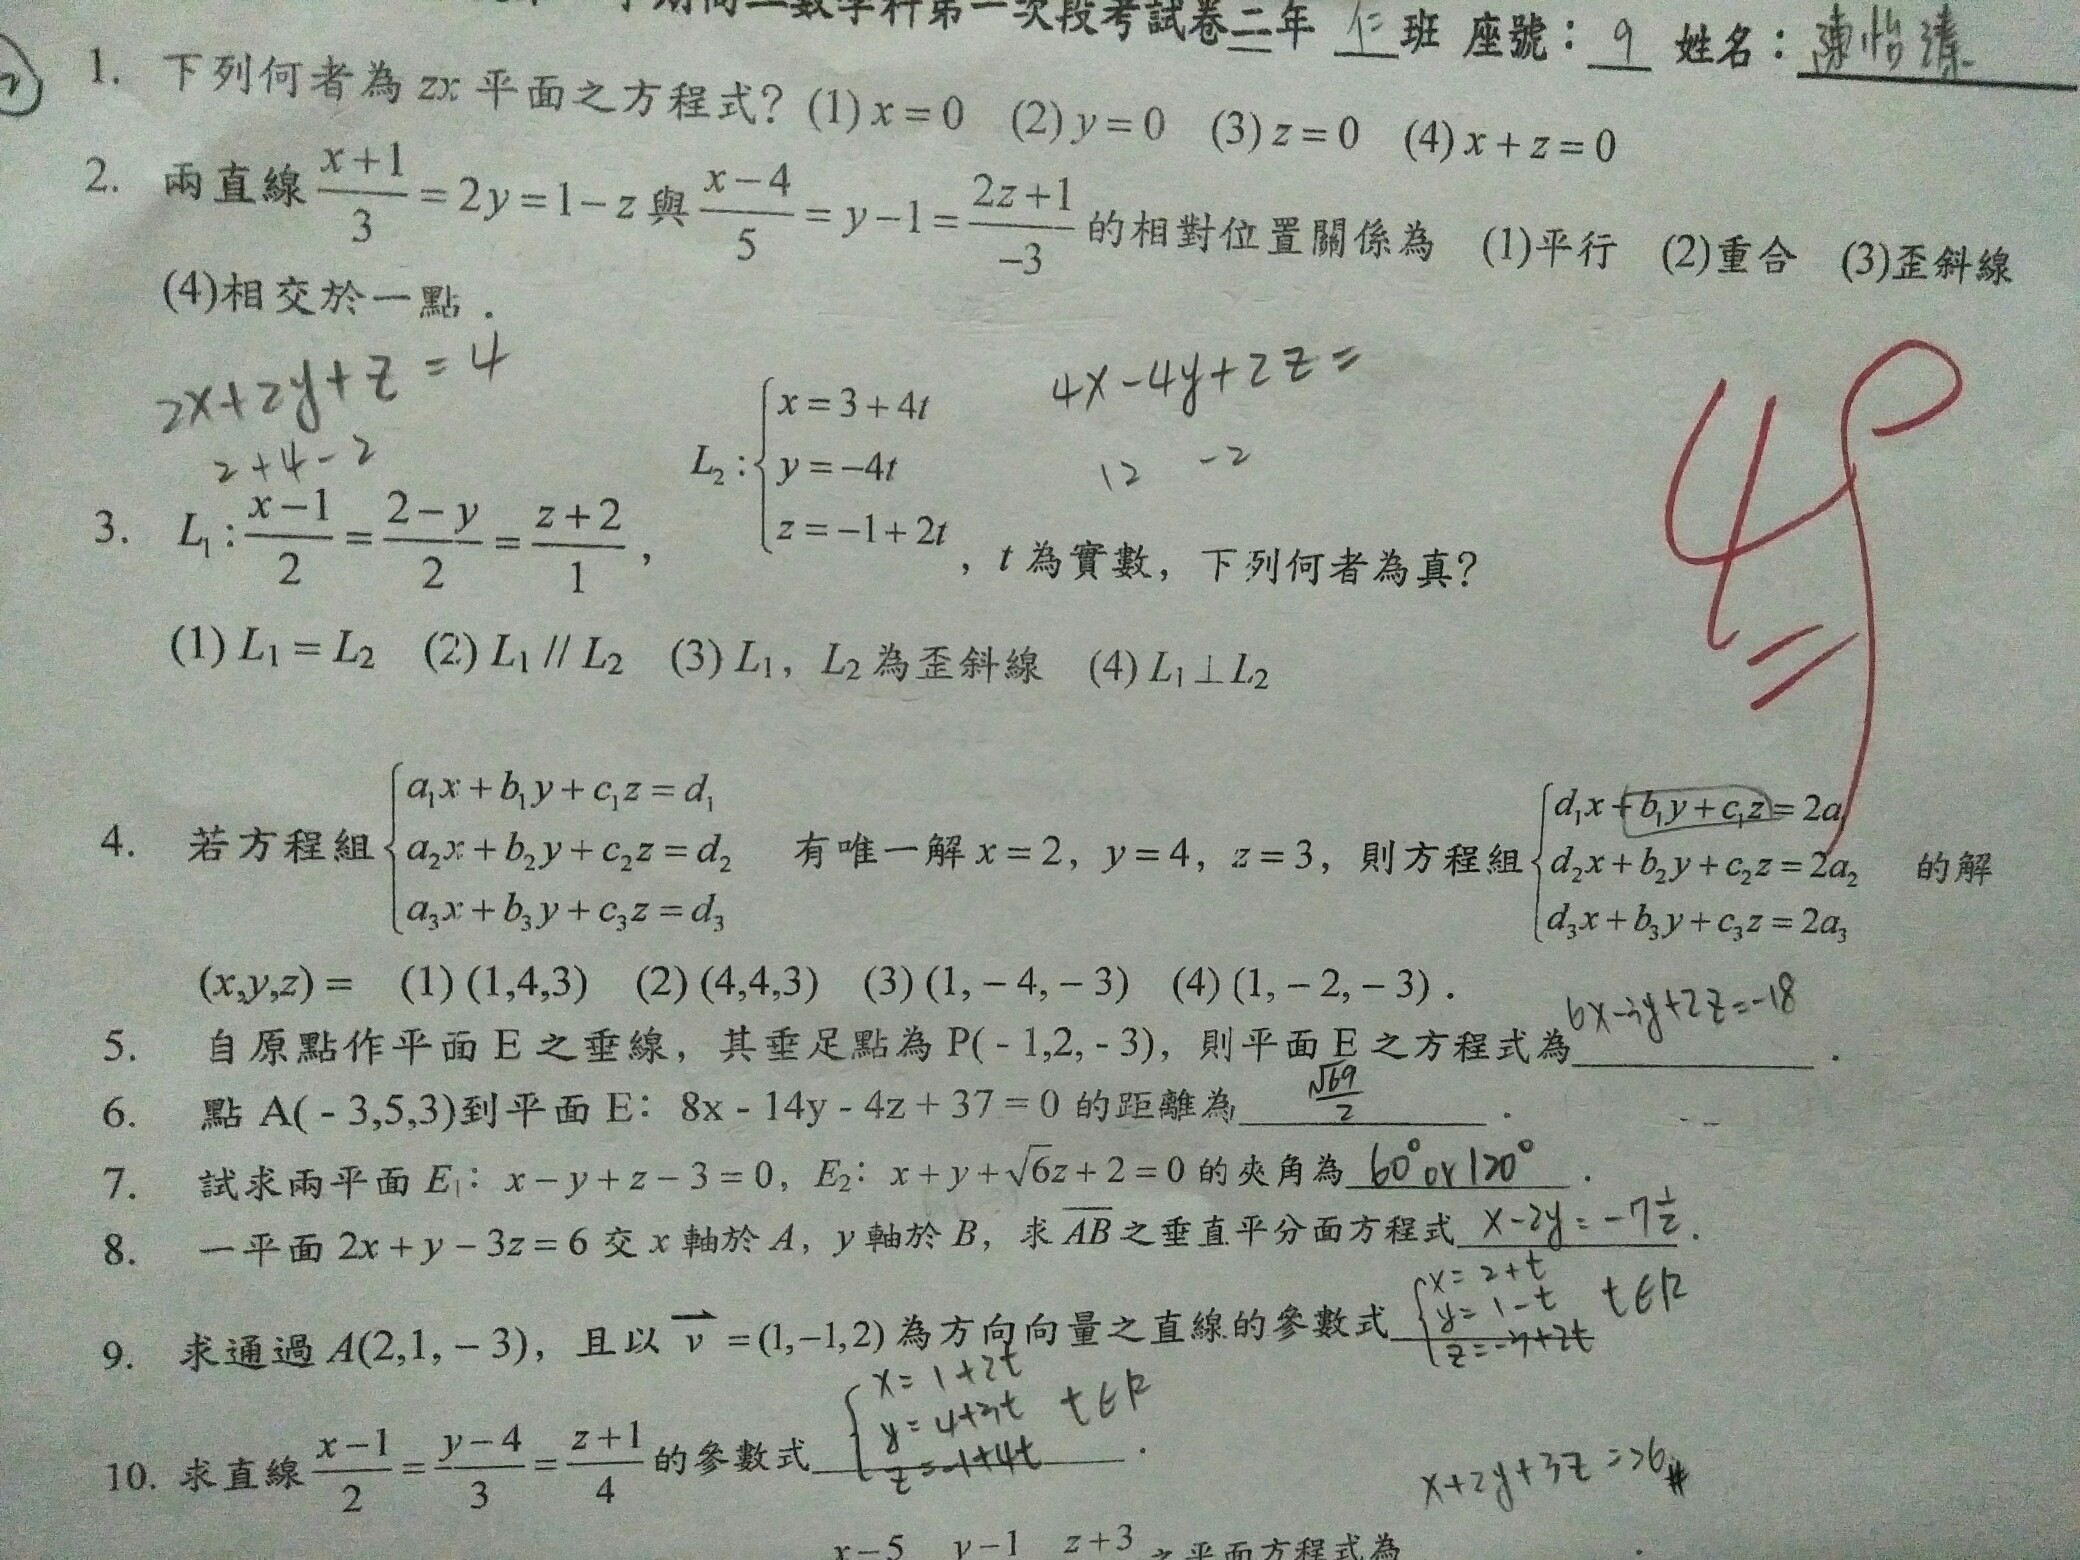 數學科第一次段考試卷二年 仁 班 座號： 9 姓名：陳怡
1. 下列何者為 zx 平面之方程式? (1) x = 0 (2) y = 0 (3) z = 0 (4) x + z = 0
2. 兩直線 (x+1)/3 = 2y = 1 − z 與 (x−4)/5 = y − 1 = (2z+1)/−3 的相對位置關係為 (1)平行 (2)重合 (3)歪斜線
(4)相交於一點．
2x+2y+z = 4
2+4-2
4x-4y+2z =
12 -2
49
3. L₁ : (x−1)/2 = (2−y)/2 = (z+2)/1 ， L₂ : { x = 3 + 4t
y = −4t
z = −1 + 2t ， t 為實數，下列何者為真?
(1) L₁ = L₂ (2) L₁ // L₂ (3) L₁，L₂ 為歪斜線 (4) L₁ ⊥ L₂
4. 若方程組 { a₁x + b₁y + c₁z = d₁
a₂x + b₂y + c₂z = d₂
a₃x + b₃y + c₃z = d₃ 有唯一解 x = 2，y = 4，z = 3，則方程組 { d₁x + b₁y + c₁z = 2a
d₂x + b₂y + c₂z = 2a₂
d₃x + b₃y + c₃z = 2a₃ 的解
(x,y,z) = (1) (1,4,3) (2) (4,4,3) (3) (1, − 4, − 3) (4) (1, − 2, − 3)．
5. 自原點作平面 E 之垂線，其垂足點為 P( - 1,2, - 3)，則平面 E 之方程式為 6x-3y+2z=-18 ．
6. 點 A( - 3,5,3)到平面 E：8x - 14y - 4z + 37 = 0 的距離為 √69/2 ．
7. 試求兩平面 E₁：x − y + z − 3 = 0，E₂：x + y + √6z + 2 = 0 的夾角為 60° or 120° ．
8. 一平面 2x + y − 3z = 6 交 x 軸於 A，y 軸於 B，求 AB 之垂直平分面方程式 x-2y = -7½ .
9. 求通過 A(2,1, − 3)，且以 v = (1,−1,2) 為方向向量之直線的參數式 { x = 2+t
y = 1-t t∈R
z = -3+2t
10. 求直線 (x−1)/2 = (y−4)/3 = (z+1)/4 的參數式 { x = 1+2t
y = 4+3t t∈R
z = -1+4t ．
x+2y+3z = 26#
x−5 y−1 z+3 之平面方程式為